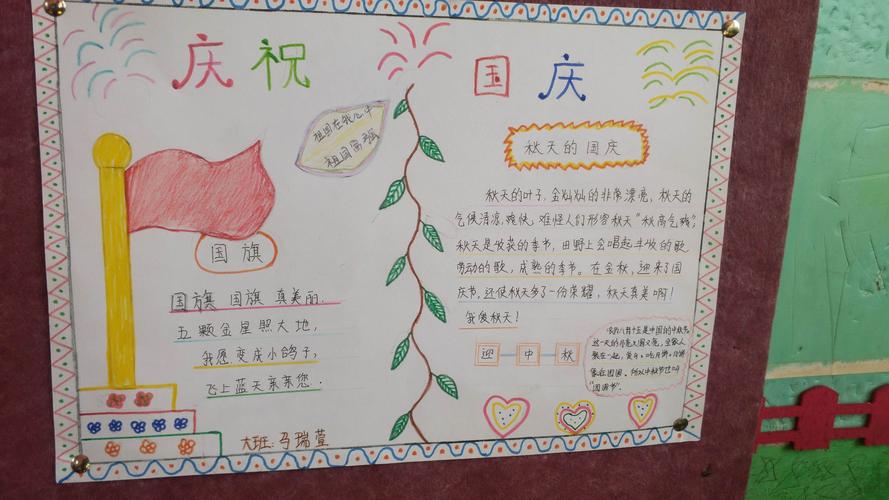 庆祝
国庆
祖国在我心中
祖国富强
国旗
国旗 国旗 真美丽.
五颗金星照大地,
我愿变成小鸽子,
飞上蓝天亲亲您.
大班:马瑞萱
秋天的国庆
秋天的叶子,金灿灿的非常漂亮,秋天的
气候清凉,爽快,难怪人们形容秋天"秋高气爽";
秋天是收获的季节,田野上会唱起丰收的歌
劳动的歌,成熟的季节。在金秋,迎来了国
庆节,还使秋天多了一份荣耀,秋天真美啊!
我爱秋天!
迎中秋
农历八月十五是中国的中秋节
这一天的月亮又圆又亮,全家人
聚在一起,赏月、吃月饼、
象征团圆,所以中秋节也叫
"团圆节".